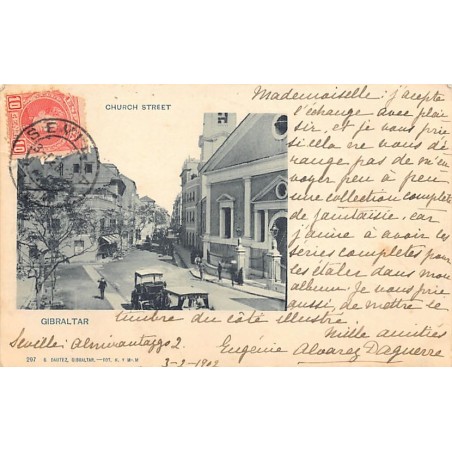 CHURCH STREET
10
10
SEVI
Mademoiselle: j'accepte
l'échange avec plai
sir, et je vous prie
si cela ne vous dé
range pas de m'en
voyer peu à peu
une collection complète
de fantaisie, car
j'aime à avoir les
séries complètes pour
les étaler dans mon
album. Je vous prie
aussi, de mettre le
timbre du côté illustré.
GIBRALTAR
Mille amitiés
Eugénie Alvarez Daguerre
Seville: Almirantazgo 2.
3-2-1902
297 B. BAUTEZ, GIBRALTAR.